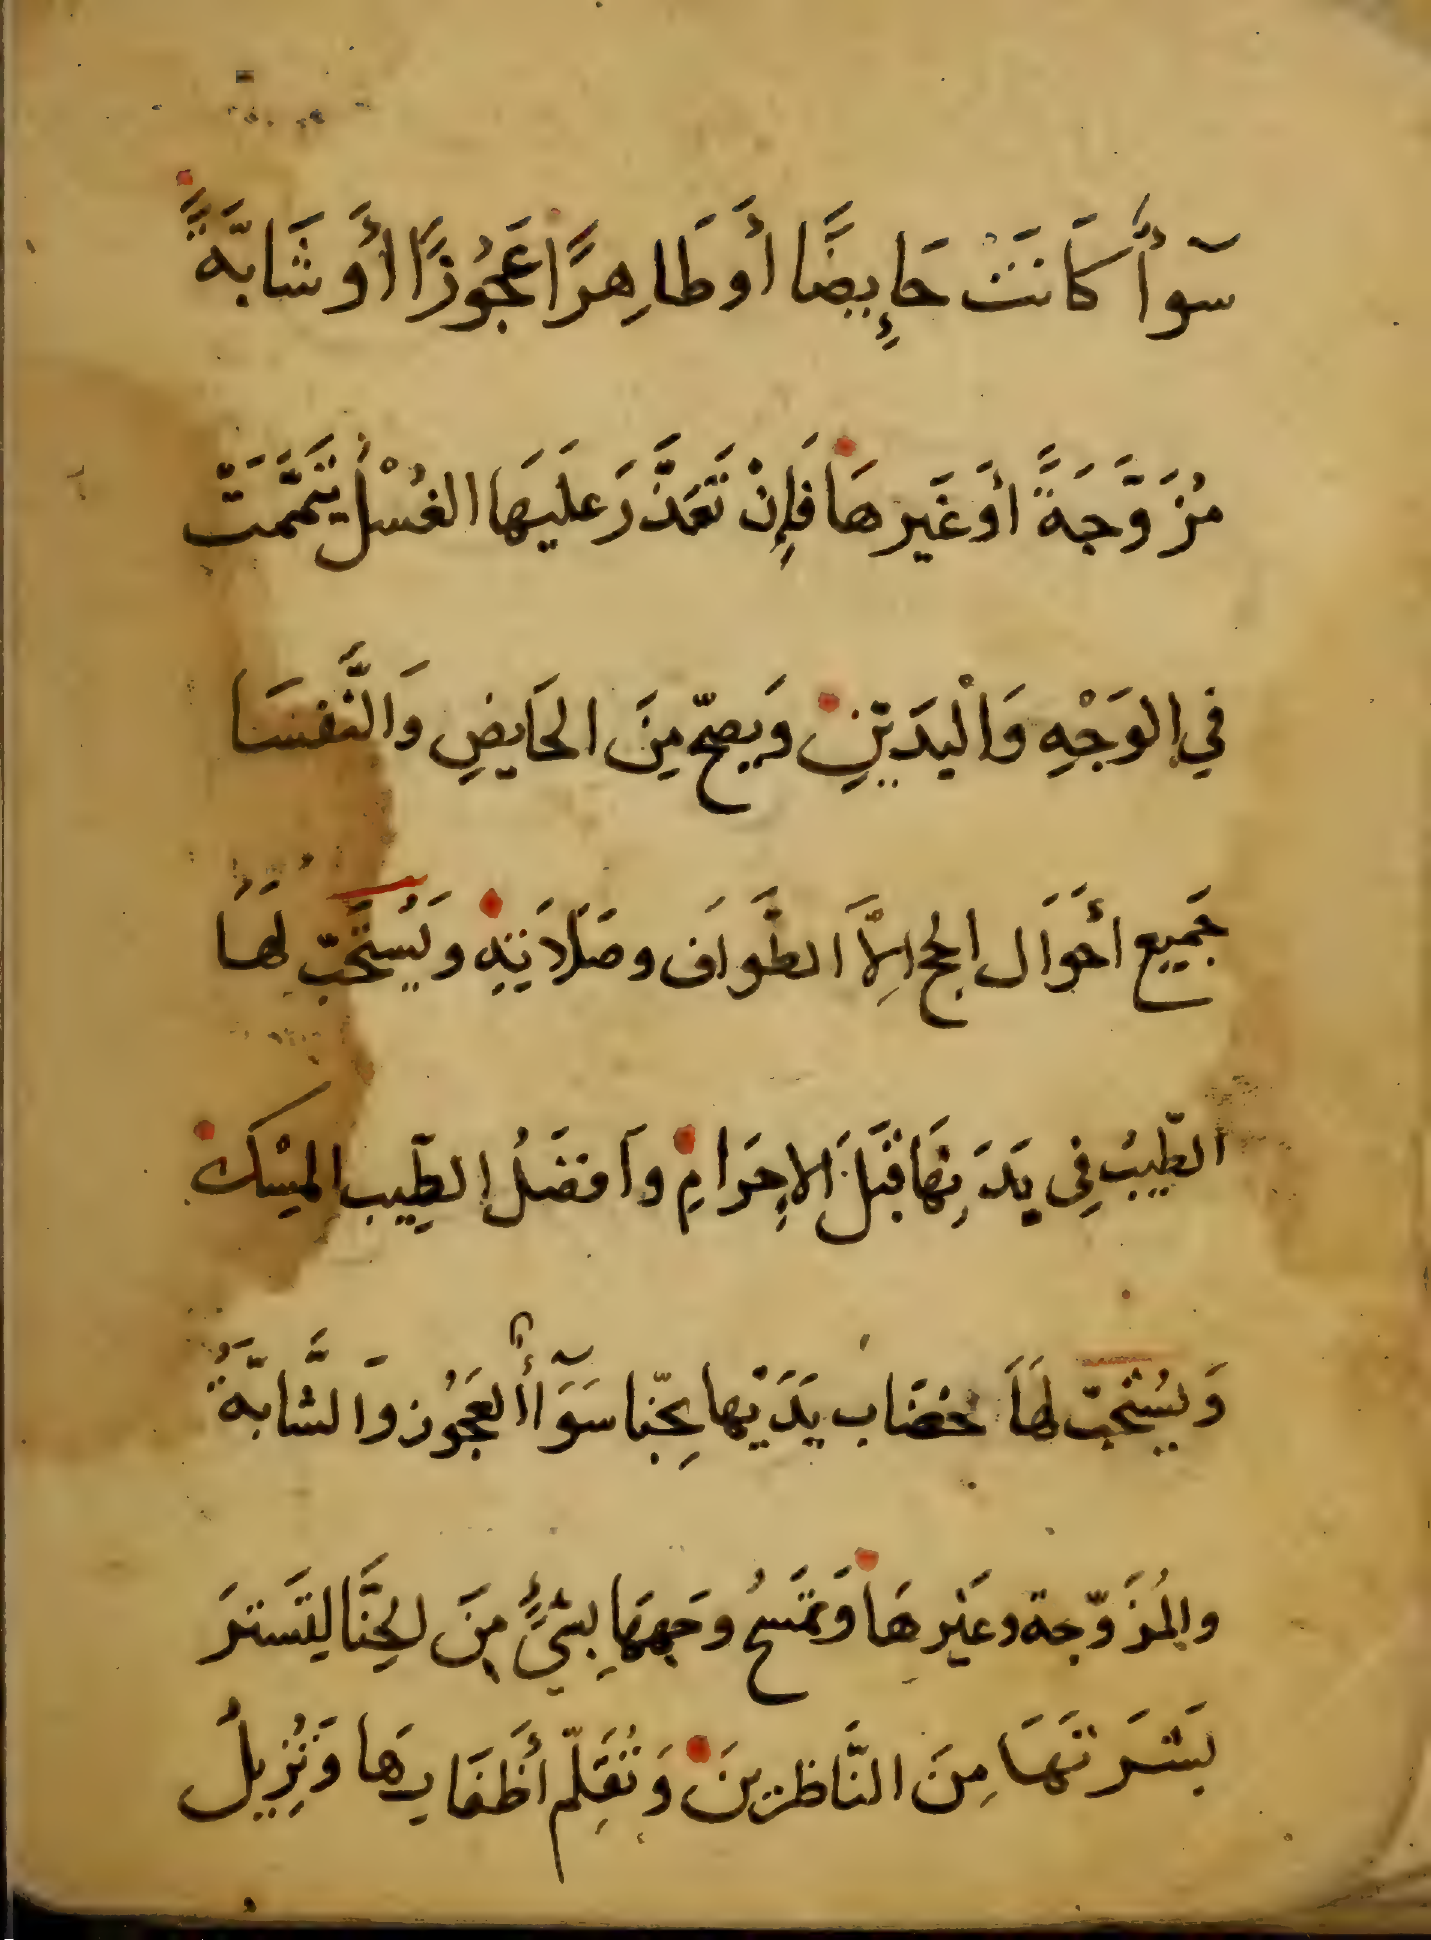 سَوآأً كَانَتْ حَايِضًا أَو طَاهِرًا عَجُوزًا أَو شَابَّةً
مُزَوَّجَةً أَوغَيرهَا فَإِنْ تَعَذَّرَ عَلَيهَا الغُسْلُ تَيَمَّمَتْ
فِي الوَجْهِ وَالْيَدَيْنِ وَيَصحّ مِنَ الحَايضِ وَالنَّفسَا
جَميع أَحوَال الحج اِلاَّ الطَّوَاف وصَلَاتِهِ وَيُسْتَحَبّ لَهَا
الطّيبُ فِي بَدَنِهَا قَبْلَ الإِحرَامِ وأَفضَلُ الطِّيبِ المِسْكُ
وَيُسْتَحَبّ لَهَا خضَاب يَدَيْهَا بِحِنّا سَوَآأً العَجُوز وَالشَّابَّةُ
والمُزَوّجة وغَيْرهَا وَتَمْسَحُ وجَههَا بِشَيْءٍ مِنَ الحِنَّا لِتَستترَ
بَشَرتهَا مِنَ النَّاظرِينَ وَتُقَلِّم أَظفَارهَا وَتُزِيلُ